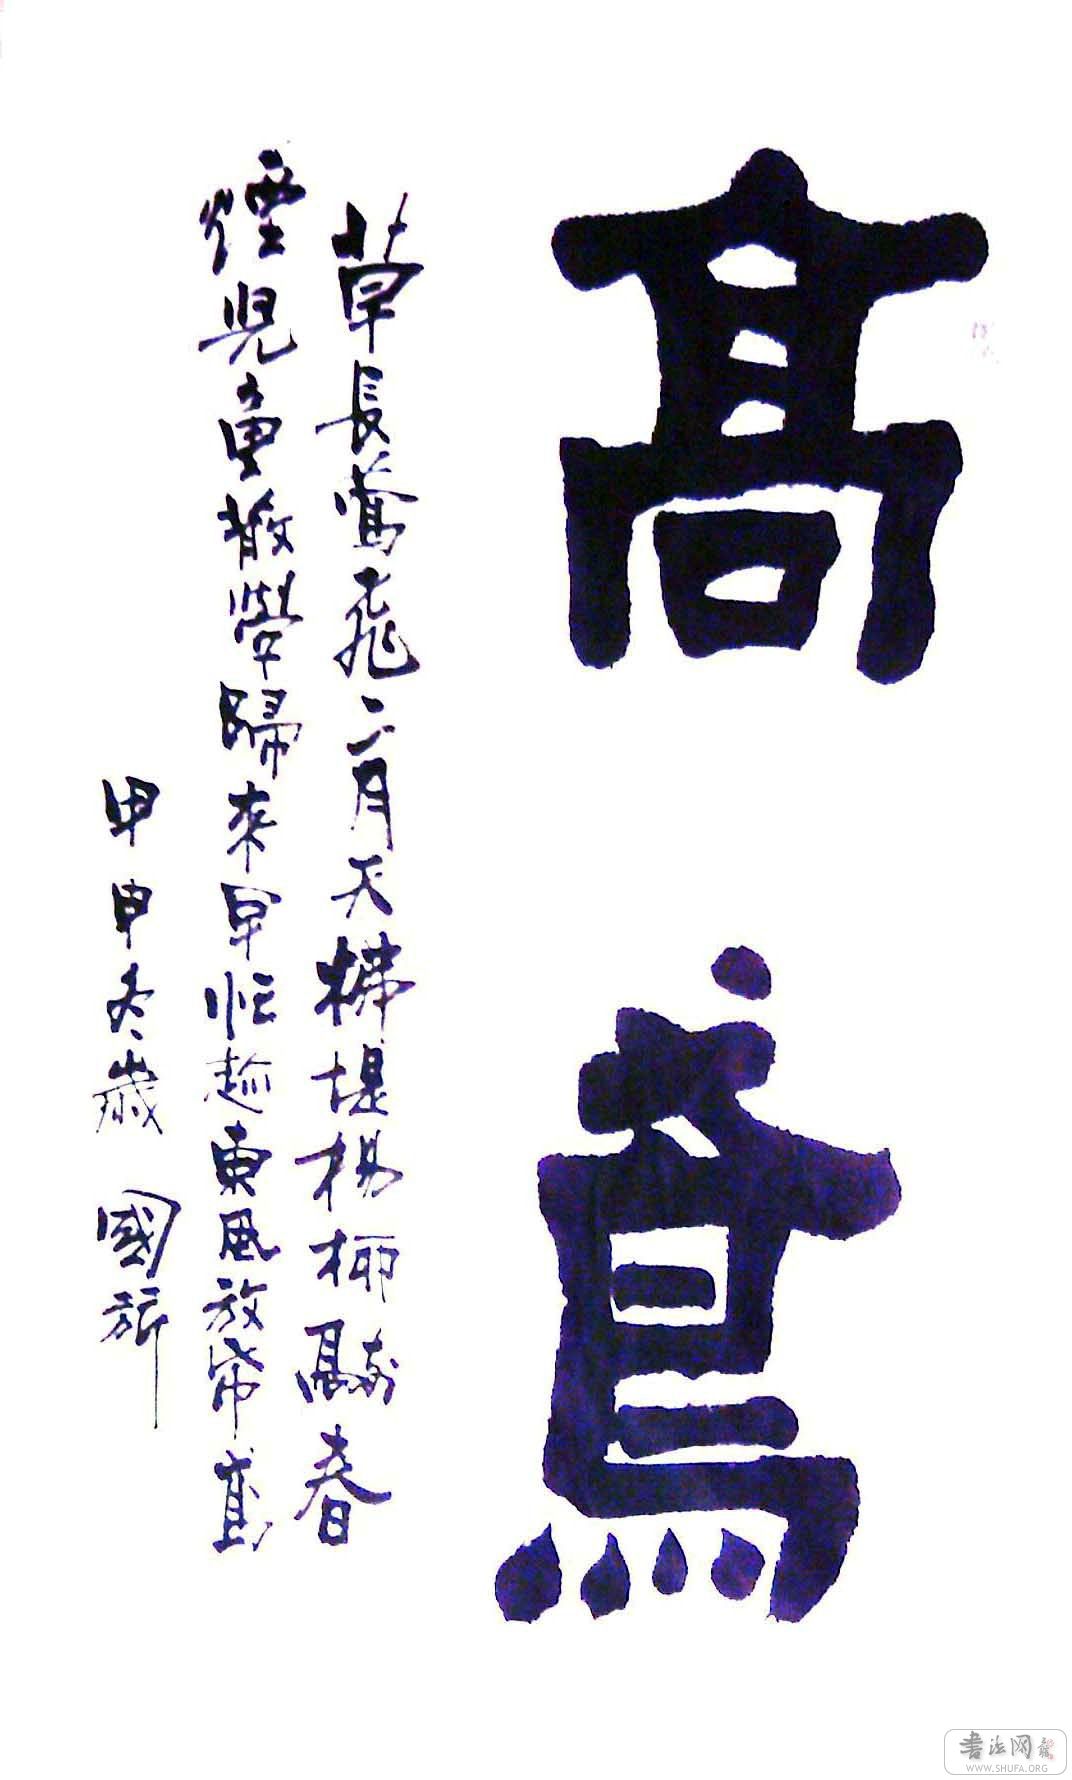 髙
鳶
草長鶯飛二月天拂堤楊柳春
煙兒童散學歸來早忙趁東風放帋鳶
甲申冬歲 國旂
書法网
WWW.SHUFA.ORG